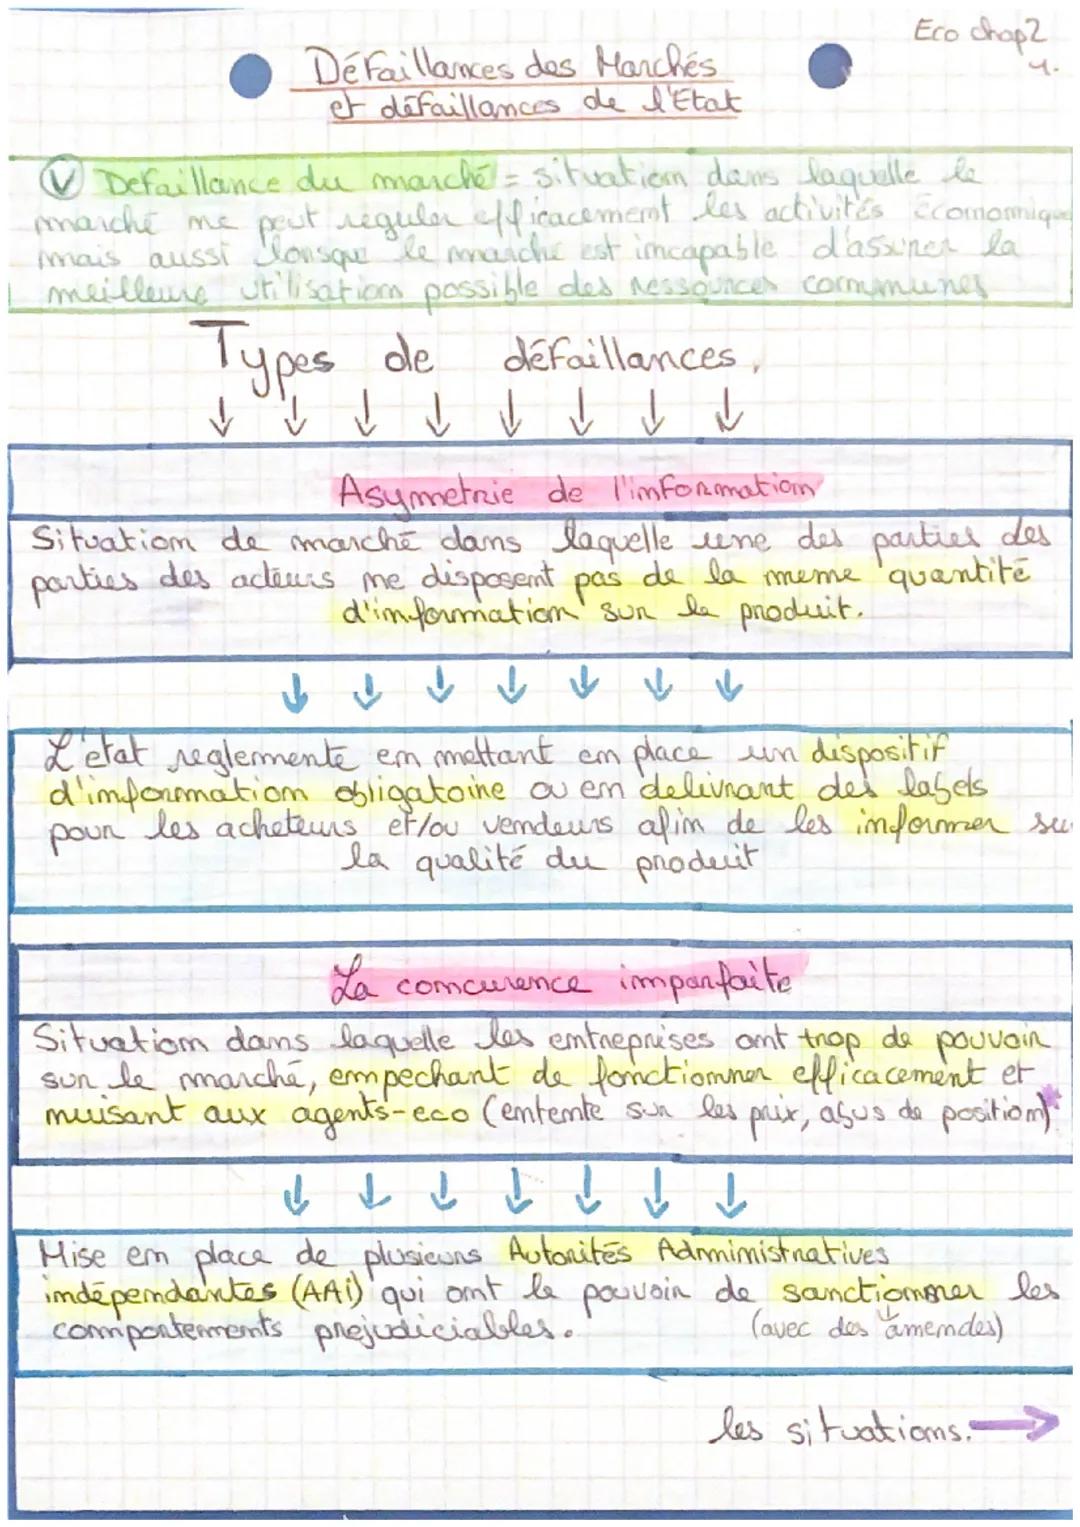 Eco chap2
1.
Défaillances des Marchés
et défaillances de l'Etat
V Defaillance du marché = situation dans laquelle le
marché ne peut réguler efficacement les activités économique
mais aussi lorsque le marché est incapable d'assurer la
meilleure utilisation possible des ressources communes
Types de défaillances.
↓ ↓ ↓ ↓ ↓ ↓ ↓ ↓
Asymetrie de l'information
Situation de marché dans laquelle une des parties des
parties des acteurs ne disposent pas de la meme quantité
d'information sur le produit.
↓ ↓ ↓ ↓ ↓ ↓ ↓
L'état reglemente en mettant en place un dispositif
d'information obligatoire ou en delivrant des labels
pour les acheteurs et/ou vendeurs afin de les informer su
la qualité du produit
La concurence imparfaite
Situation dans laquelle les entreprises ont trop de pouvoir
sur le marché, empechant de fonctionner efficacement et
nuisant aux agents-eco (entente sur les prix, abus de position)*
↓ ↓ ↓ ↓ ↓ ↓ ↓
Mise en place de plusieurs Autorités Administratives
indépendantes (AAi) qui ont le pouvoir de sanctionner les
comportements prejudiciables. (avec des amendes)
les situations. →